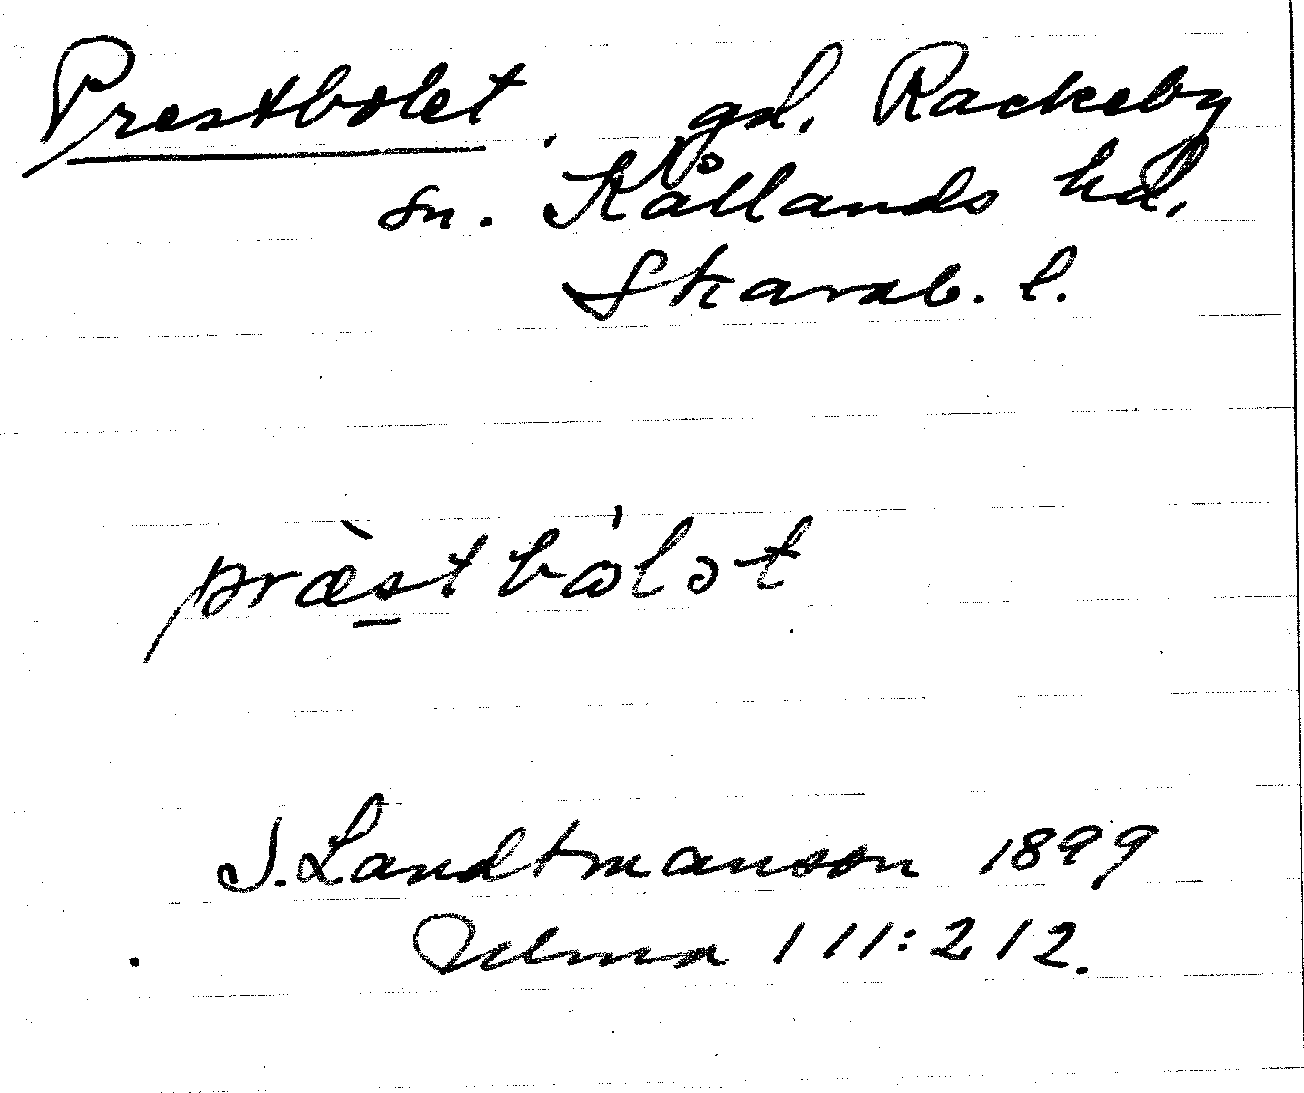 Prestbolet. gd. Rackeby
sn. Kållands hd.
Skarab. l.
præ̀stbω̍lət
J. Landtmanson 1899
111:212.